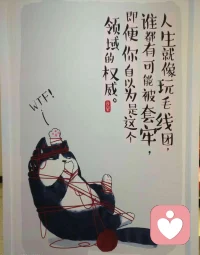 人生就像玩毛线团，
谁都有可能被套牢，
即便你自以为是这个
领域的权威。
WTF!